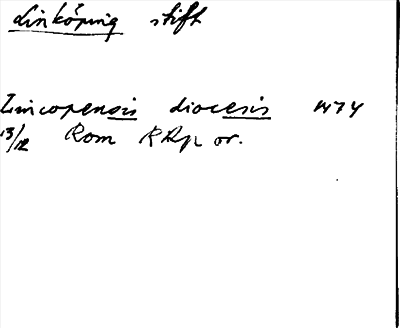 Linköping stift
Lincopensis diocesis 1474
13/12 Rom RAp or.